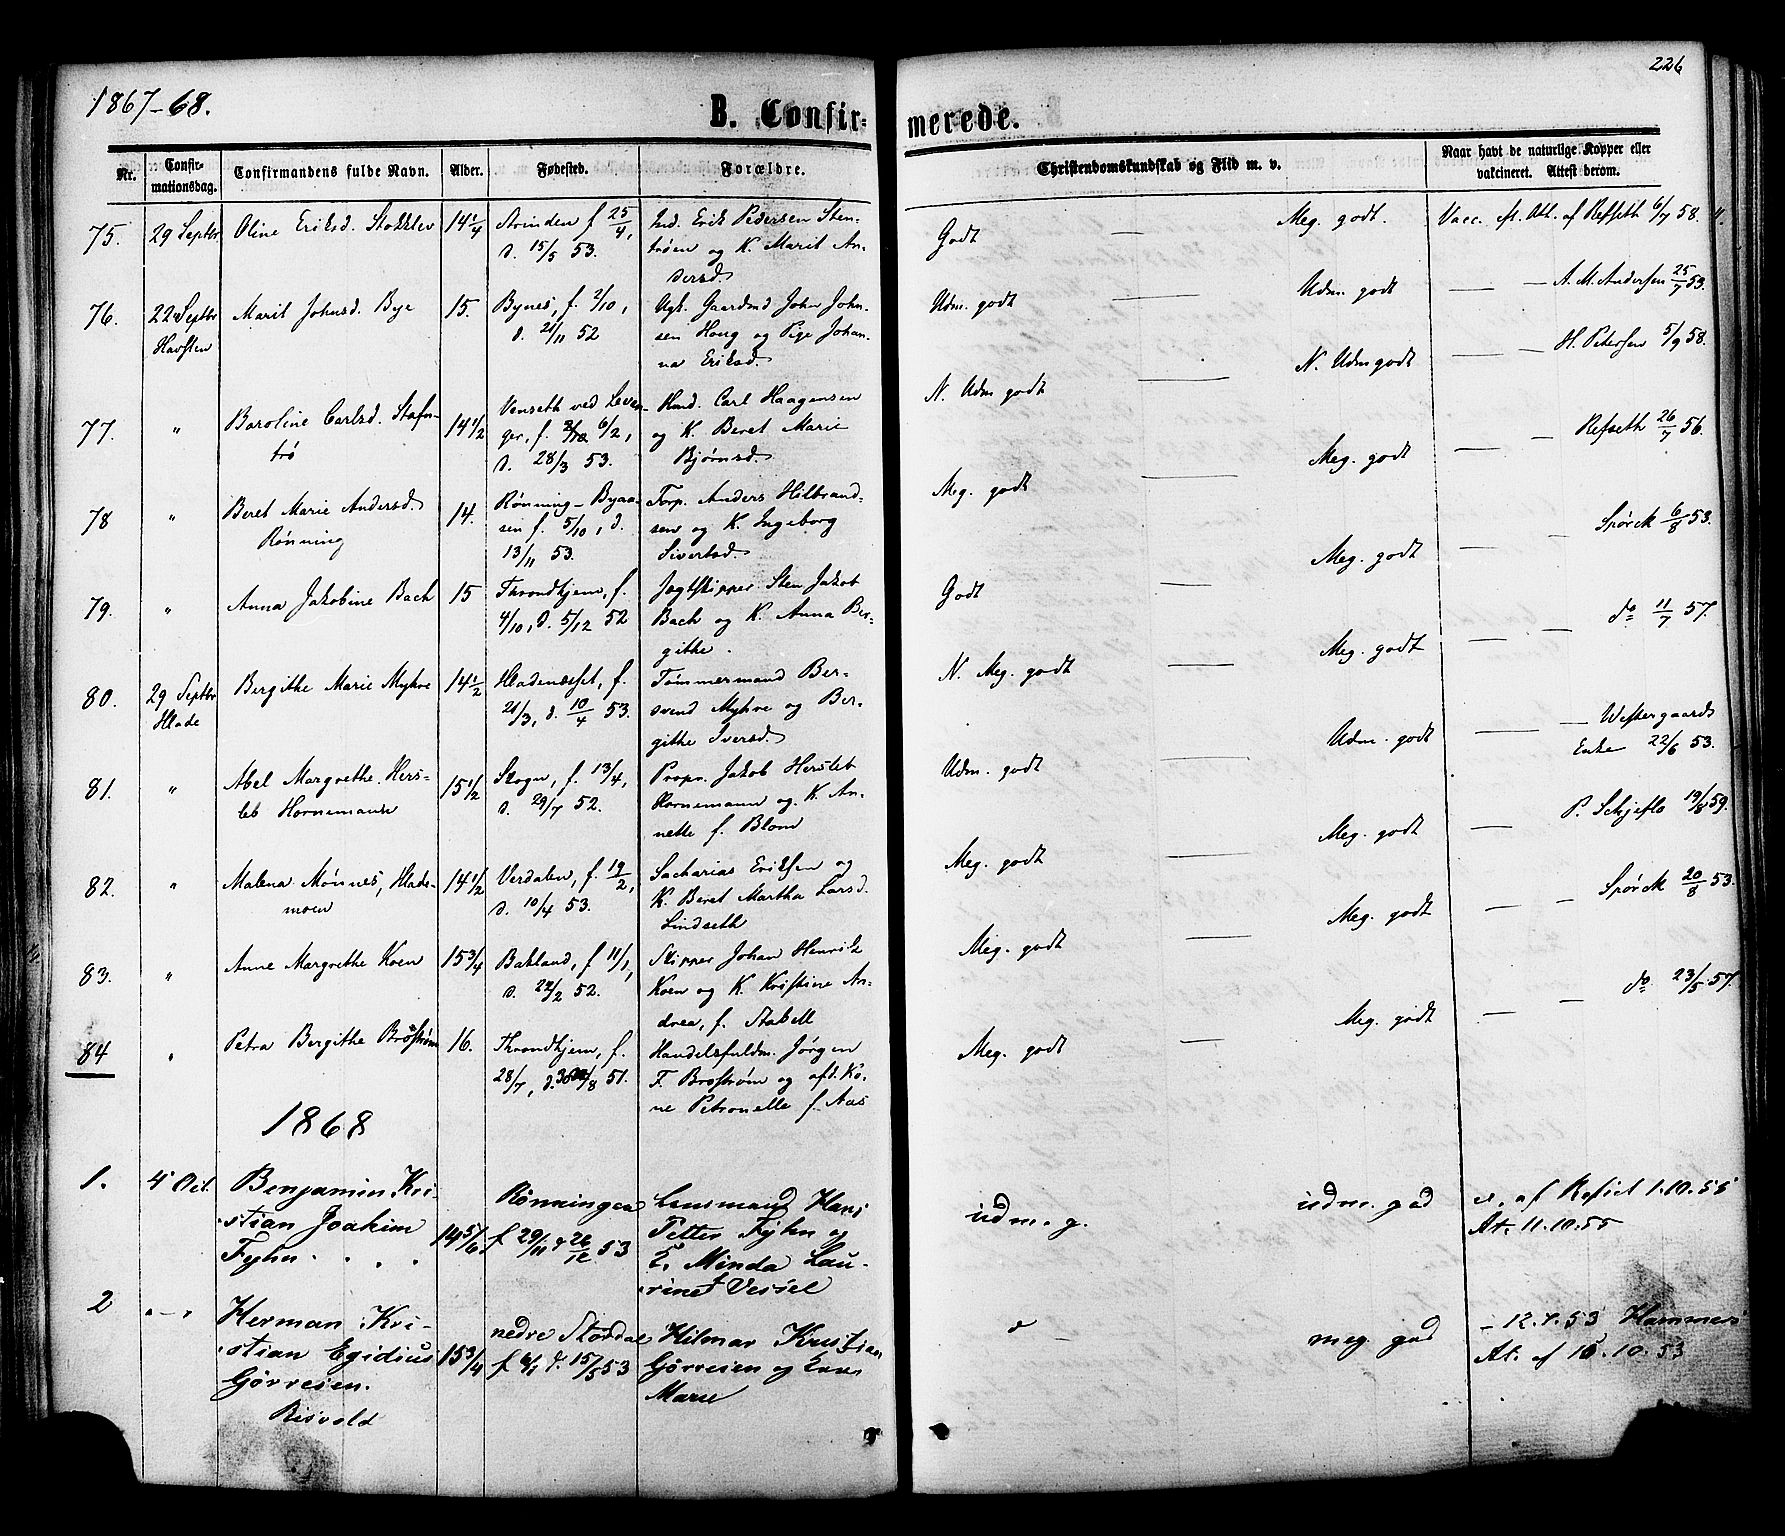 1867-68.
B. Confir-
merede.
226
Nr.
Confir-
mationsdag.
Confirmandens fulde Navn.
Alder.
Fødested.
Forældre.
Christendomskundskab og Flid m. v.
Naar havt de naturlige Kopper eller
vakcineret. Attest derom.
75.
29 Septbr
Oline Eriksd. Stokklev
14 1/4
Avinden f 25/4,
d. 15/5 53.
Ind. Erik Pedersen Sten-
trøen og K. Marit An-
dersd.
Godt
—
Meg. godt.
Vacc. efl. Att. af Refseth 6/7 58.
76.
22 Septbr
Havsten
Marit Johnsd. Bye
15.
Bynes, f. 2/10,
d. 21/11 52
Ugt. Gaardmd John John-
sen Houg og Pige Johan-
na Eriksd.
Udm. godt
—
Udm. godt
— — A. M. Andersen 25/7 53.
77.
"
Baroline Carlsd. Stafn-
trö
14 1/2
Venseth ved Levan-
ger, f. 6/2,
d. 28/3 53.
Hmd. Carl Haagensen
og K. Beret Marie
Bjørnsd.
N. Udm godt
—
N. Udm godt
— — H. Petersen 5/9 58.
78
"
Beret Marie Andersd.
Rønning
14.
Rønning - Byaa-
sen f. 5/10, d.
13/11 53.
Torp. Anders Hilbrand-
sen og K. Ingeborg
Sivertsd.
Meg. godt
—
Meg. godt
— — Refseth 26/7 56.
79.
"
Anna Jakobine Bach
15
Throndhjem, f.
4/10, d. 5/12 52
Jagtskipper Sten Jakob
Bach og K. Anna Ber-
githe.
Godt
—
Meg. godt
— — Spørck 6/8 53.
80.
29 Septbr
Hlade
Bergithe Marie Myhre
14 1/2
Hladenæsset, f.
21/3, d. 10/4 53.
Tømmermand Ber-
svend Myhre og Ber-
githe Iversd.
N. Meg. godt
—
Meg. godt
— — do 11/7 57.
81.
"
Abel Margrethe Hers-
leb Hornemann
15 1/2
Skogn, f. 13/4,
d. 29/7 52.
Propr. Jakob Hersleb
Hornemann og K. An-
nette f. Blom
Udm. godt
—
Udm. godt
— — Westergaards
Enke 22/6 53.
82.
"
Malena Mønnes, Hlads-
moen
14 1/2
Verdalen, f. 19/2,
d. 10/4 53.
Sacharias Eriksen og
K. Beret Martha Larsd.
Lindseth
Meg. godt
—
Meg. godt
— P. Schjeflo 19/8 59.
83.
"
Anne Margrethe Koen
15 3/4
Bakland, f 11/1,
d. 22/2 52.
Skipper Johan Henrik
Koen og K. Kristine An-
drea, f. Stabell
Meg. godt
—
Meg. godt
— — Spørck 20/8 53.
84
"
Petra Bergithe Broström
16.
Throndhjem, f.
28/7, d. 8 51.
Handelsfuldm. Jörgen
F. Broström og afd. Ko-
ne Petronelle f. Aas
Meg. godt
—
Meg. godt
— — do 23/5 57.
1868
1.
4 Oct.
Benjamin Kri-
stian Joakim
Fyhn.
14 5/6
Rönningen
f 29/11 d 26/12 53
Lensmand Hans
Petter Fyhn og
E. Minda Lau-
rine f Vessel
udm. g.
udm. god
v. af Refset 1.10.55
At. 11.10.55
2
" - "
Herman Kri-
stian Egidius
Görresen.
Risvold
15 3/4
nedre Stördal
f 6/1 d. 15/5 53
Hilmar Kristian
Görresen og
Marie
meg god
- 12.7.53 Hammer
At. af 16.10.53